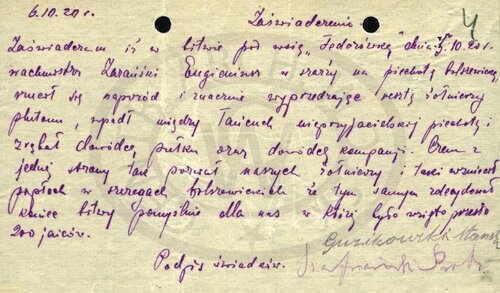 6.10.20 r.
Zaświadczenie
4
Zaświadczam iż w bitwie pod wsią „Fedorówką” dnia 5.10.20 r.
wachmistrz Zarański Eugieniusz w szarży na piechotę bolszewicką,
wysunął się naprzód i znacznie wyprzedzając resztę żołnierzy
plutonu, wpadł między łańcuch nieprzyjacielskiej piechoty i
zrąbał dowódcę pułku oraz dowódcę kompanji. Czem z
jednej strony tak porwał naszych żołnierzy i taki wzniecił
popłoch w szeregach bolszewickich że tym samym zdecydował
koniec bitwy pomyślnie dla nas w której było wzięto przeszło
200 jeńców.
Podpis świadków.